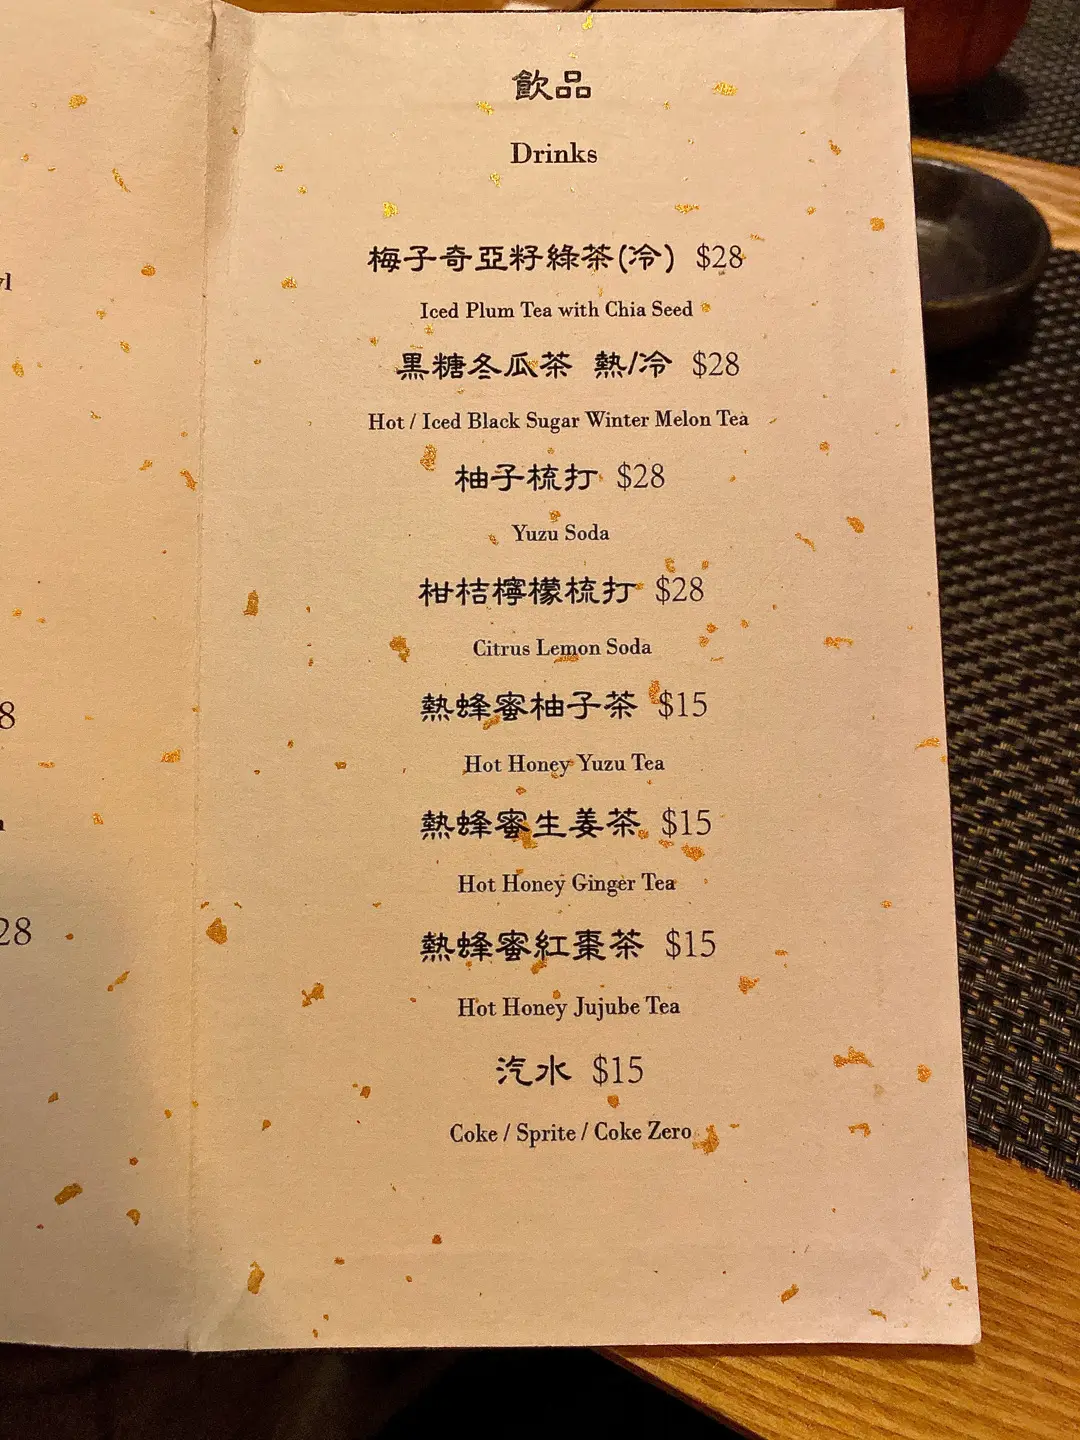 飲品
Drinks
梅子奇亞籽綠茶(冷) $28
Iced Plum Tea with Chia Seed
黒糖冬瓜茶 熱/冷 $28
Hot / Iced Black Sugar Winter Melon Tea
柚子梳打 $28
Yuzu Soda
柑桔檸檬梳打 $28
Citrus Lemon Soda
熱蜂蜜柚子茶 $15
Hot Honey Yuzu Tea
熱蜂蜜生姜茶 $15
Hot Honey Ginger Tea
熱蜂蜜紅棗茶 $15
Hot Honey Jujube Tea
汽水 $15
Coke / Sprite / Coke Zero